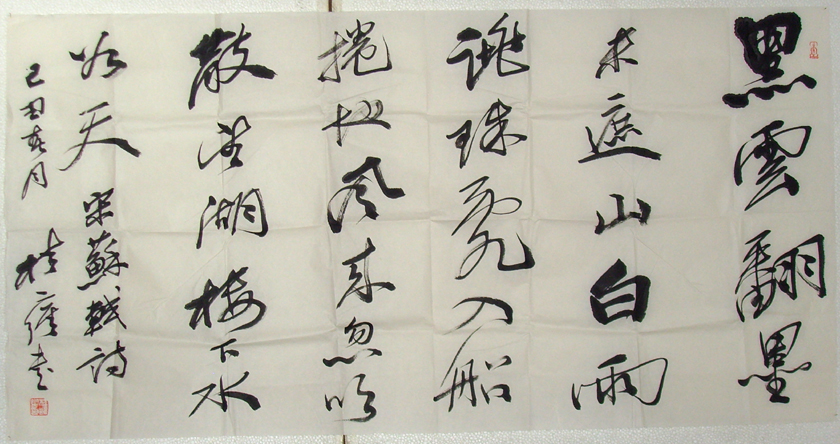 黑雲翻墨
未遮山白雨
跳珠亂入船
捲地風來忽吹
散望湖樓下水
如天 宋蘇軾詩
己丑春月 書